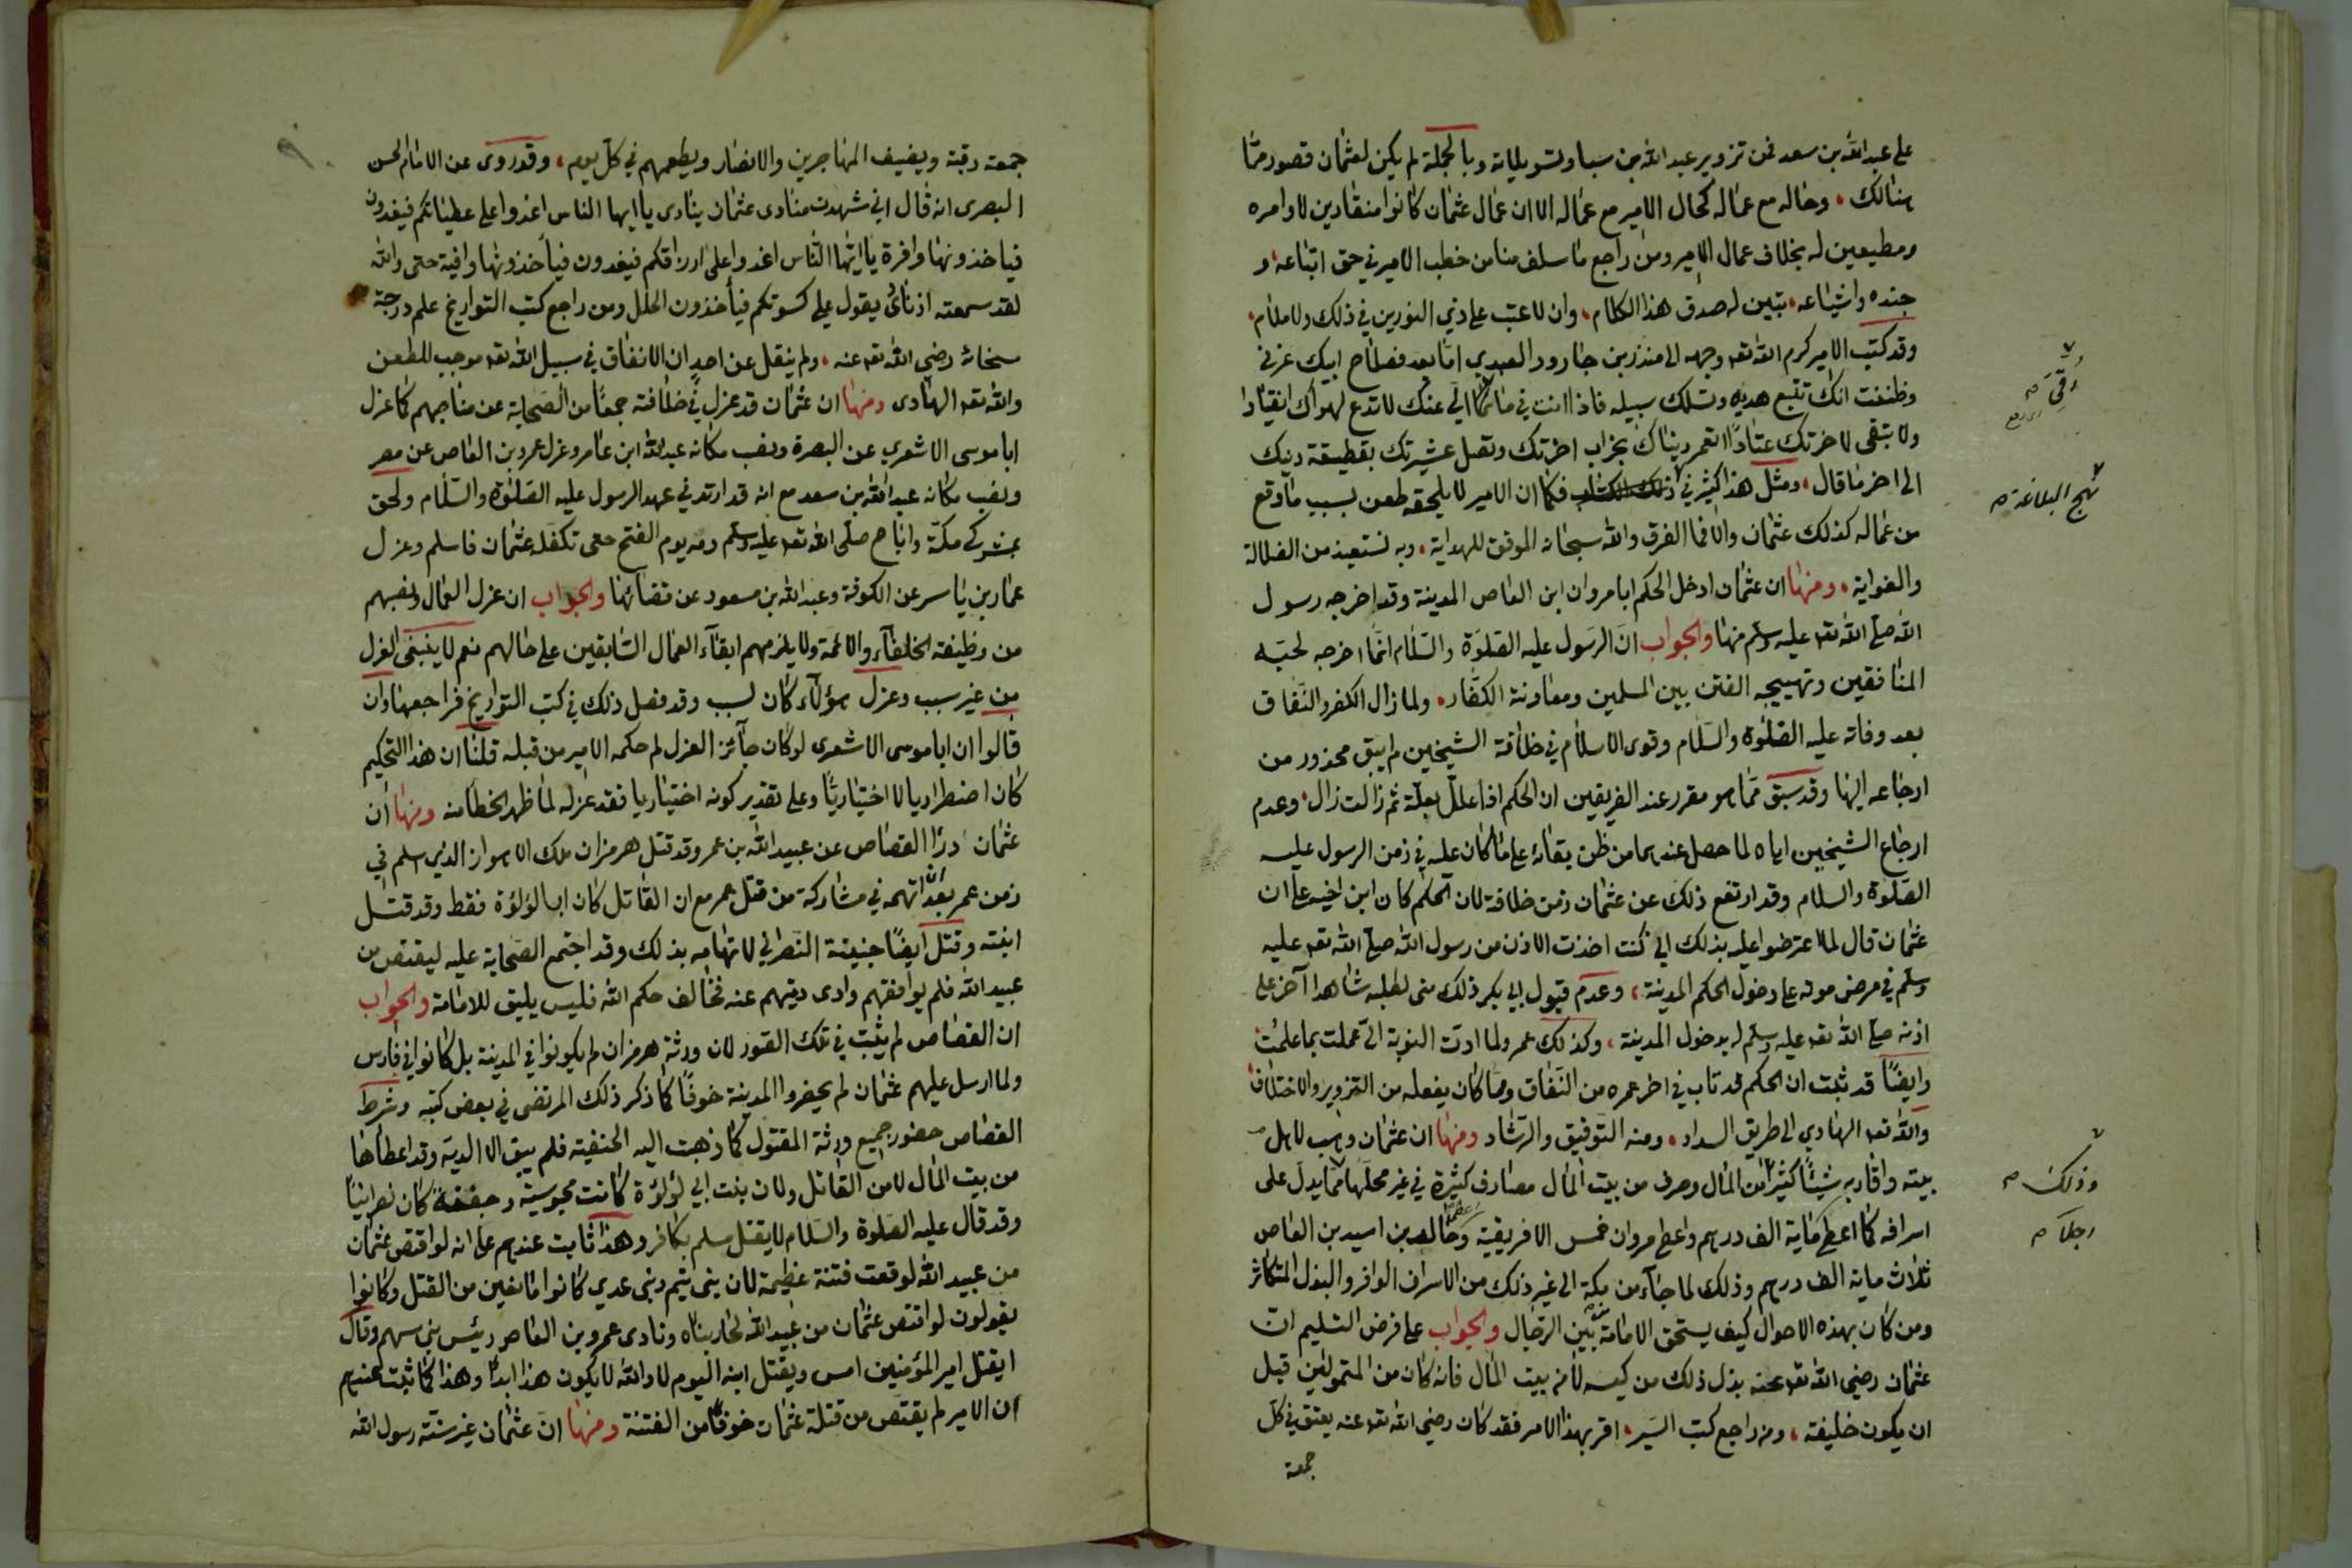 على عبد الله بن سعد فمن تزوير عبد الله بن سبا وتسويلاته وبالجملة لم يكن لعثمان قصور مما
هنالك، وحاله مع عماله كحال الامير مع عماله الا ان عمال عثمان كانوا منقادين لاوامره
ومطيعين له بخلاف عمال الامير ومن راجع ما سلف منا من خطب الامير في حق اتباعه، و
جنده واشياعه، تبين له صدق هذا الكلام، وان لا عتب على ذي النورين في ذلك ولا ملام،
وقد كتب الامير كرم الله تعه وجهه الى منذر بن جارود العبدي اما بعد فصلاح ابيك غرني
وظننت انك تتبع هديه وتسلك سبيله فاذا انت فيما الي عنك لا تدع لهواك انقيادا
رقي
ولا تبقى لاخرتك عتادا اتعمر دنياك بخراب اخرتك وتصل عشيرتك بقطيعة دينك
الى اخر ما قال، ومثل هذا كثير في فكما ان الامير لا يلحقه طعن بسبب ما وقع
نهج البلاغة
من عماله كذلك عثمان والا فما الفرق والله سبحانه الموفق للهداية، وبه نستعيذ من الضلالة
والغواية، ومنها ان عثمان ادخل الحكم ابا مروان ابن العاص المدينة وقد اخرجه رسول
الله صلى الله تعه عليه وسلم منها والجواب ان الرسول عليه الصلوة والسلام انما اخرجه لحبه
المنافقين وتهييجه الفتن بين المسلمين ومعاونة الكفار، ولما زال الكفر والنفاق
بعد وفاته عليه الصلوة والسلام وقوى الاسلام في خلافة الشيخين لم يبق محذور من
ارجاعه اليها وقد سبق مما هو مقرر عند الفريقين ان الحكم اذا علل بعلة ثم زالت زال، وعدم
ارجاع الشيخين اياه لما حصل عندهما من ظن بقائه على ما كان عليه في زمن الرسول عليه
الصلوة والسلام وقد ارتفع ذلك عن عثمان زمن خلافته لان الحكم كان ابن اخيه على ان
عثمان قال لما اعترضوا عليه بذلك اني كنت اخذت الاذن من رسول الله صلى الله تعه عليه
وسلم في مرض موته على دخول الحكم المدينة، وعدم قبول ابي بكر ذلك منى لطلبه شاهدا آخر على
اذنه صلى الله تعه عليه وسلم له بدخول المدينة، وكذلك عمر ولما ادت النوبة الي عملت بما علمت
وايضًا قد ثبت ان الحكم قد تاب في اخر عمره من النفاق ومما كان يفعله من التزوير والاختلاف
والله تعه الهادي الى طريق السداد، ومنه التوفيق والرشاد ومنها ان عثمان وهب لاهل
بيته واقاربه شيئًا كثيرا من المال وصرف من بيت المال مصارف كثيرة في غير محلها مما يدل على
وذلك
اسرافه كما اعطى ماية الف درهم واعطى مروان خمس الافريقية وخالد بن اسيد بن العاص
اجلا
ثلاث ماية الف درهم وذلك لما جاء من مكة الى غير ذلك من الاسراف الوافر والبذل المتكاثر
ومن كان بهذه الاحوال كيف يستحق الامامة بين الرجال والجواب على فرض التسليم ان
عثمان رضي الله تعه عنه بذل ذلك من كيسه لا من بيت المال فانه كان من المتمولين قبل
ان يكون خليفة، ومن راجع كتب السير، اقر بهذا الامر فقد كان رضي الله تعه عنه يعتق في كل
جمعة
جمعة رقبة ويضيف المهاجرين والانصار ويطعمهم في كل يوم، وقد روى عن الامام الحسن
البصرى انه قال اني شهدت منادى عثمان ينادى يا ايها الناس اغدوا على عطياتكم فيغدون
فياخذونها وافرة يا ايها الناس اغدوا على ارزاقكم فيغدون فيأخذونها وافية حتى والله
لقد سمعته اذناى يقول على كسوتكم فيأخذون الحلل ومن راجع كتب التواريخ علم درجة
سخائه رضي الله تعه عنه، ولم ينقل عن احد ان الانفاق في سبيل الله تعه موجب للطعن
والله تعه الهادى ومنها ان عثمان قد عزل في خلافته جمعًا من الصحابة عن مناصبهم كما عزل
ابا موسى الاشعري عن البصرة ونصب مكانه عبد الله ابن عامر وعزل عمرو بن العاص عن مصر
ونصب مكانه عبد الله بن سعد مع انه قد ارتد في عهد الرسول عليه الصلوة والسلام ولحق
بمشركي مكة واباح صلى الله تعه عليه وسلم دمه يوم الفتح حتى تكفله عثمان فاسلم وعزل
عمار بن ياسر عن الكوفة وعبد الله بن مسعود عن قضائها والجواب ان عزل العمال ونصبهم
من وظيفة الخلفاء والائمة ولا يلزمهم ابقاء العمال السابقين على حالهم نعم لا ينبغى العزل
من غير سبب وعزل هؤلاء كان لسبب وقد فصل ذلك في كتب التواريخ فراجعها وان
قالوا ان ابا موسى الاشعرى لو كان جائز العزل لم حكمه الامير من قبله قلنا ان هذا التحكيم
كان اضطراريا لا اختياريًا وعلى تقدير كونه اختياريا فقد عزله لما ظهر الخطأ منه ومنها ان
عثمان درأ القصاص عن عبيد الله بن عمر وقد قتل هرمزان ملك الاهواز الذي اسلم في
زمن عمر بعد ان اتهمه في مشاركة من قتل عمر مع ان القاتل كان ابا لؤلؤة فقط وقد قتل
ابنته وقتل ايضًا جفينة النصراني لاتهامه بذلك وقد اجتمع الصحابة عليه ليقتص من
عبيد الله فلم يوافقهم وادى ديتهم عنه فخالف حكم الله فليس يليق للامامة والجواب
ان القصاص لم يثبت في تلك الصور لان ورثة هرمزان لم يكونوا في المدينة بل كانوا في فارس
ولما ارسل عليهم عثمان لم يحضروا المدينة خوفًا كما ذكر ذلك المرتضى في بعض كتبه وشرط
القصاص حضور جميع ورثة المقتول كما ذهبت اليه الحنفية فلم يبق الا الدية وقد اعطاها
من بيت المال لا من القاتل ولان بنت ابي لؤلؤة كانت مجوسية وجفينة كان نصرانيًا
وقد قال عليه الصلوة والسلام لا يقتل مسلم بكافر وهذا ثابت عندهم على انه لو اقتص عثمان
من عبيد الله لوقعت فتنة عظيمة لان بنى تيم وبنى عدي كانوا مانعين من القتل وكانوا
يقولون لو اقتص عثمان من عبيد الله لحاربناه ونادى عمرو بن العاص رئيس بني سهم وقال
ايقتل امير المؤمنين امس ويقتل ابنه اليوم لا والله لا يكون هذا ابدًا وهذا كما ثبت عندهم
ان الامير لم يقتص من قتلة عثمان خوفًا من الفتنة ومنها ان عثمان غير سنة رسول الله